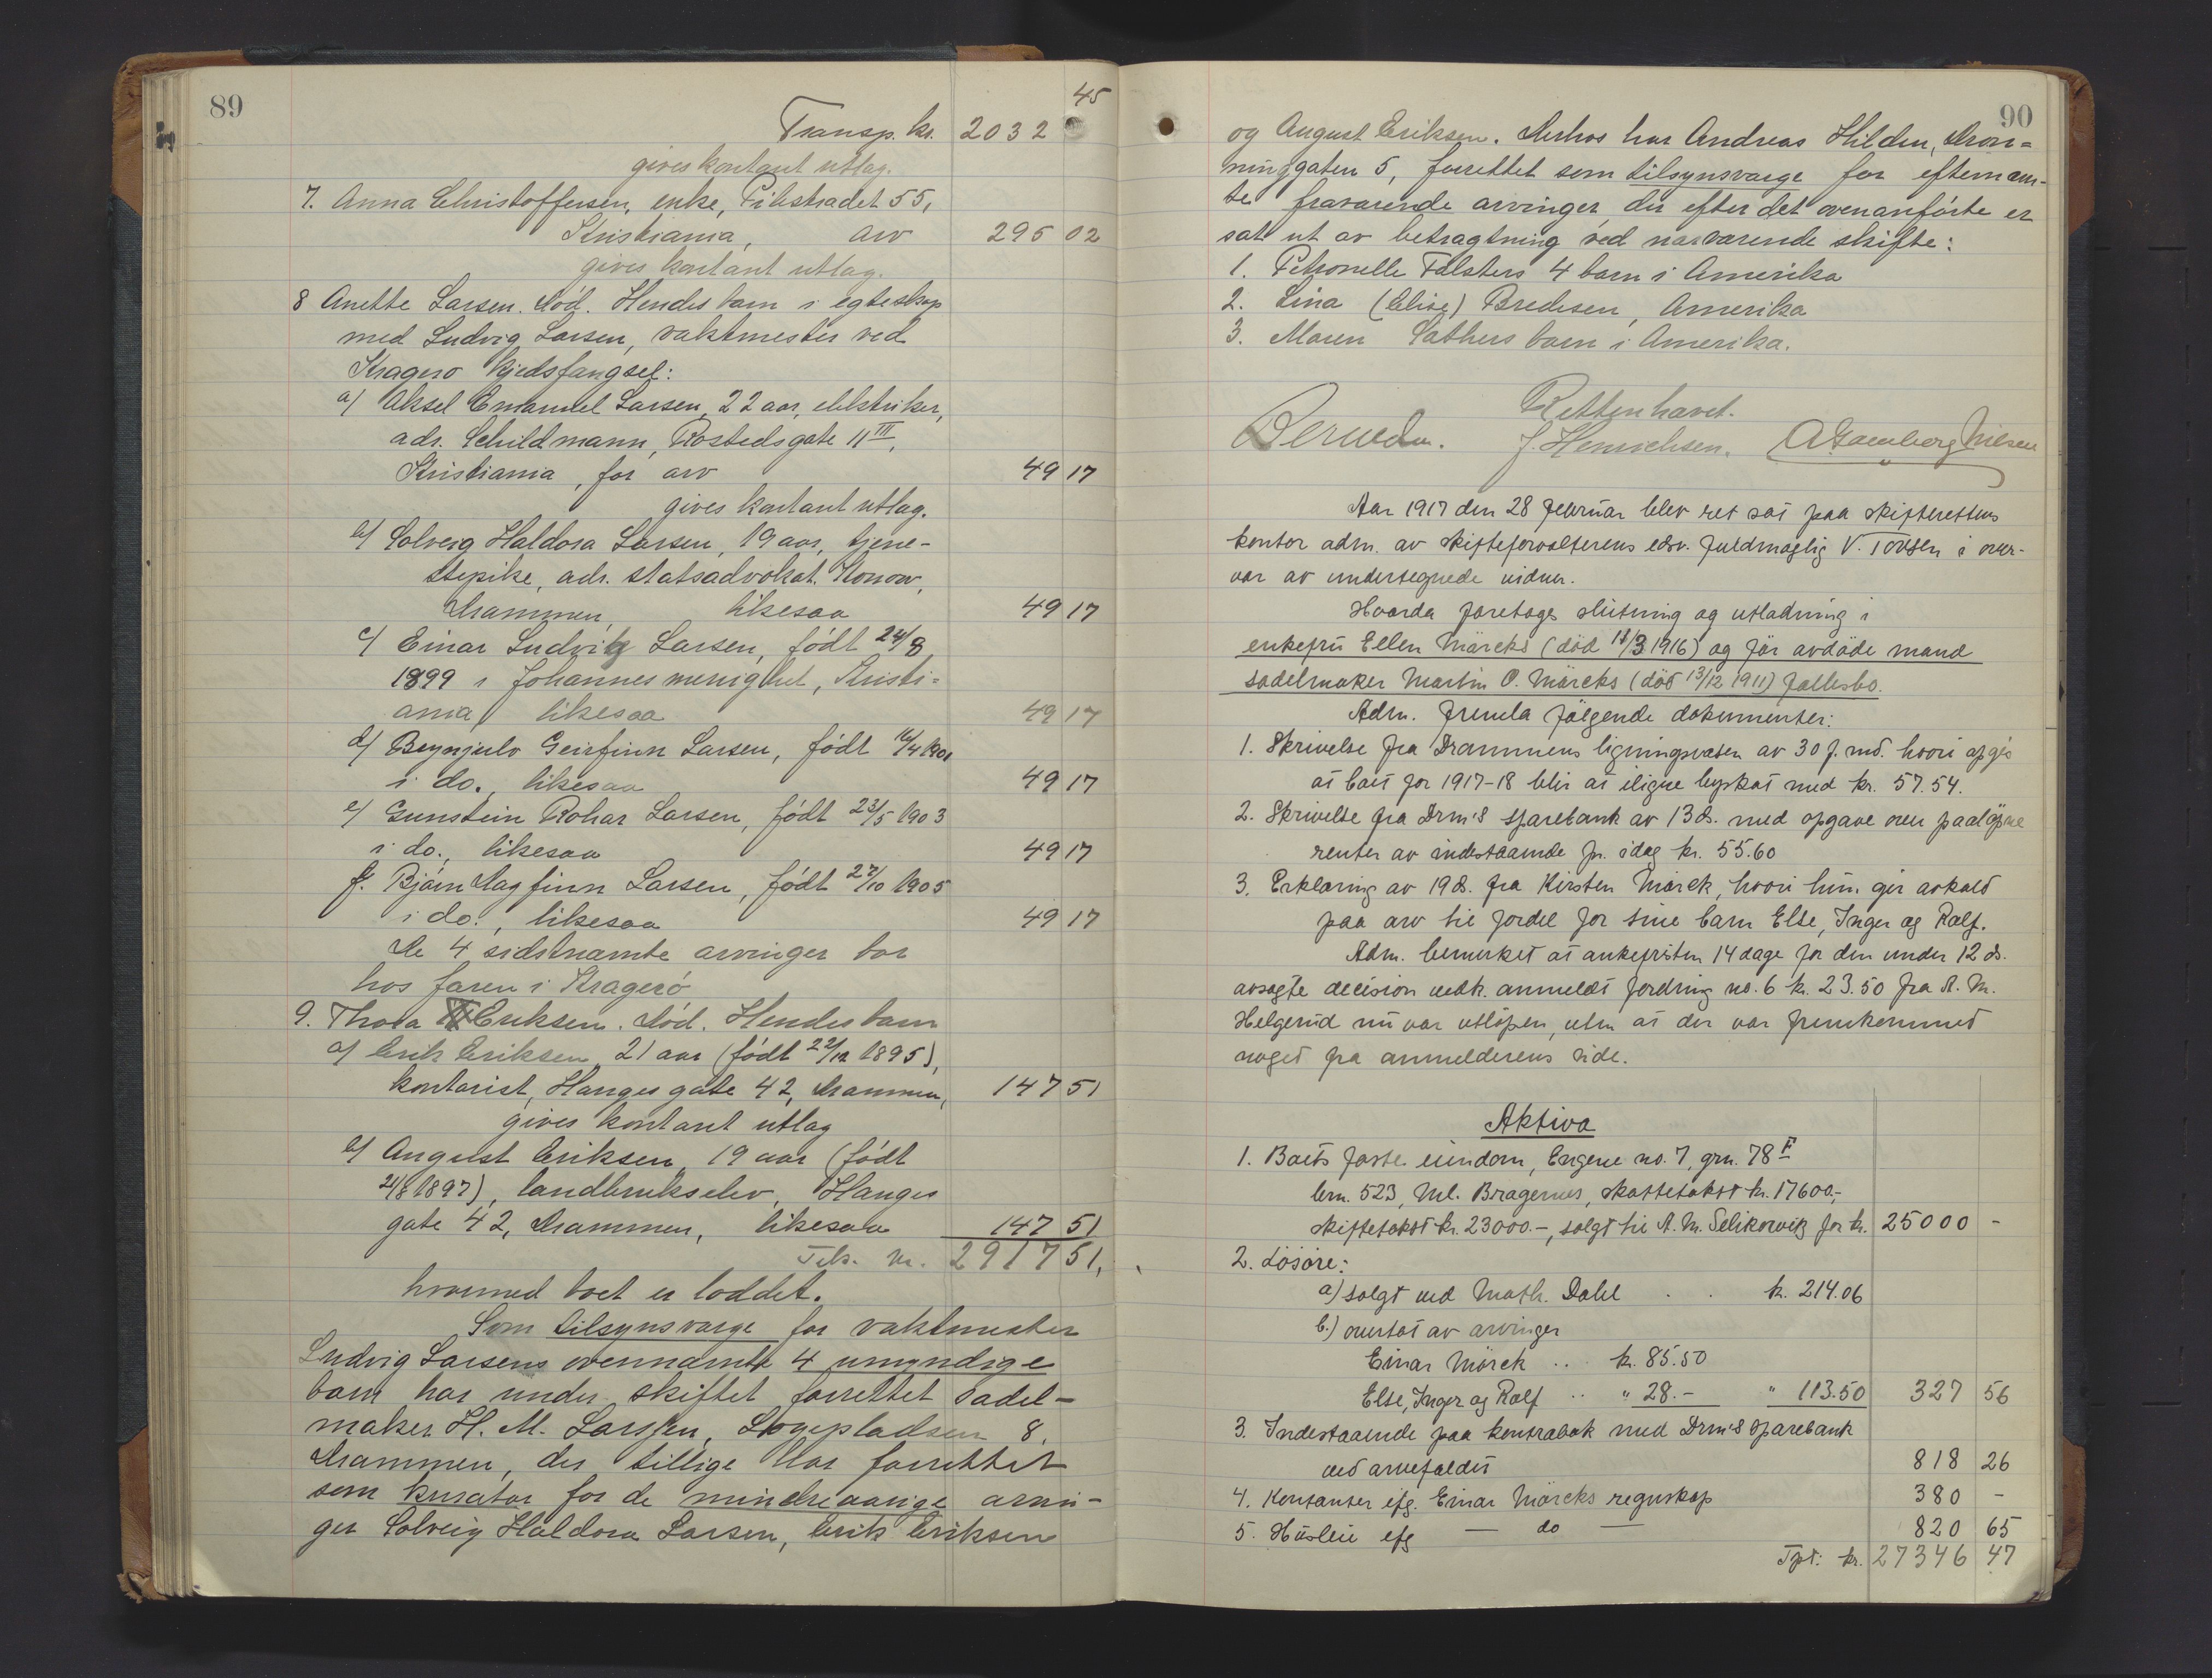 89
45
Transp. kr. 2032
gives kontant utlag.
7. Anna Christoffersen, enke, Pilestrædet 55,
Kristiania, arv 295 02
gives kontant utlag.
8 Anette Larsen. Död. Hendes barn i egteskap
med Ludvig Larsen, vaktmester ved
Kragerø kjedsfængsel:
a) Aksel Emanuel Larsen, 22 aar, elektriker,
adr. Schildmann, Rostedsgate 11 III,
Kristiania, for arv 49 17
gives kontant utlag.
b) Solveig Haldora Larsen, 19 aar, tjene-
stepike, adr. statsadvokat Konow,
Drammen, likesaa 49 17
c) Einar Ludvig Larsen, født 24/8
1899 i Johannes menighet, Kristi-
ania, likesaa 49 17
d) Brynjulv Geirfinn Larsen, født 16/4 1901
i do., likesaa 49 17
e) Gunstein Rohar Larsen, født 23/5 1903
i do., likesaa 49 17
f. Bjørn Dagfinn Larsen, født 27/10 1905
i do., likesaa 49 17
De 4 sidstnævnte arvinger bor
hos faren i Kragerö
9. Thora Eriksen. Död. Hendes barn
a) Erik Eriksen, 21 aar (født 22/12 1895),
kontorist, Hauges gate 42, Drammen, 147 51
gives kontant utlag
b) August Eriksen, 19 aar (født
21/8 1897), landbrukselev, Hauges
gate 42, Drammen, likesaa 147 51
Tils. kr. 2917 51,
hvormed boet er loddet.
Som tilsynsværge for vaktmester
Ludvig Larsens ovennævnte 4 umyndige
barn har under skiftet forrettet sadel-
maker H. M. Larssen, Løgepladsen 8,
Drammen, der tillige har forrettet
som kurator for de mindreaarige arvin-
ger Solveig Haldora Larsen, Erik Eriksen
90
og August Eriksen. Derhos har Andreas Hilden, Dron-
ninggaten 5, forrettet som tilsynsværge for efternævn-
te fraværende arvinger, der efter det ovenanførte er
sat ut av betragtning ved nærværende skifte:
1. Petronelle Falsters 4 barn i Amerika
2. Lina (Elise) Bredesen, Amerika
3. Maren Sæthers barn i Amerika.
Retten hævet.
J. Henrichsen. Nilsen
Aar 1917 den 28 februar blev ret sat paa skifterettens
kontor adm. av skifteforvalterens edsv. fuldmægtig V. Tovsen i over-
vær av undertegnede vidner.
Hvorda foretages slutning og utlodning i
enkefru Ellen Mörcks (död 18/3 1916) og för avdöde mand
sadelmaker Martin O. Mörcks (död 13/12 1911) fællesbo.
Adm. fremla fölgende dokumenter:
1. Skrivelse fra Drammens ligningsvæsen av 30 f. md. hvori opgis
at boet for 1917-18 blir at iligne byskat med kr. 57.54.
2. Skrivelse fra Drm's sparebank av 13 ds. med opgave over paalöpne
renter av indestaaende pr. idag kr. 55.60
3. Erklæring av 19 ds. fra Kirsten Mörck, hvori hun gir avkald
paa arv til fordel for sine barn Else, Inger og Ralf.
Adm. bemerket at ankefristen 14 dage for den under 12 ds.
avsagte decision vedk. anmeldt fordring no. 6 kr. 23.50 fra A. M.
Helgerud nu var utlöpen, uten at der var fremkommet
noget fra anmelderens side.
Aktiva
1. Boets faste eiendom, Engene no. 7, grn. 78 F
brn. 523, Ml. Bragernes, skattetakst kr. 17600,-
skiftetakst kr. 23000.-, solgt til A. M. Selikorvik for kr. 25000 -
2. Lösöre:
a) solgt ved Math. Dahl . . kr. 214.06
b.) overtat av arvinger
Einar Mörck .. kr. 85.50
Else, Inger og Ralf .. " 28.- " 113.50 327 56
3. Indestaaende paa kontrabok med Drm's sparebank
ved arvefaldet 818 26
4. Kontanter efg. Einar Mörcks regnskap 380 -
5. Husleie efg — do — 820 65
Tpt: kr. 27346 47